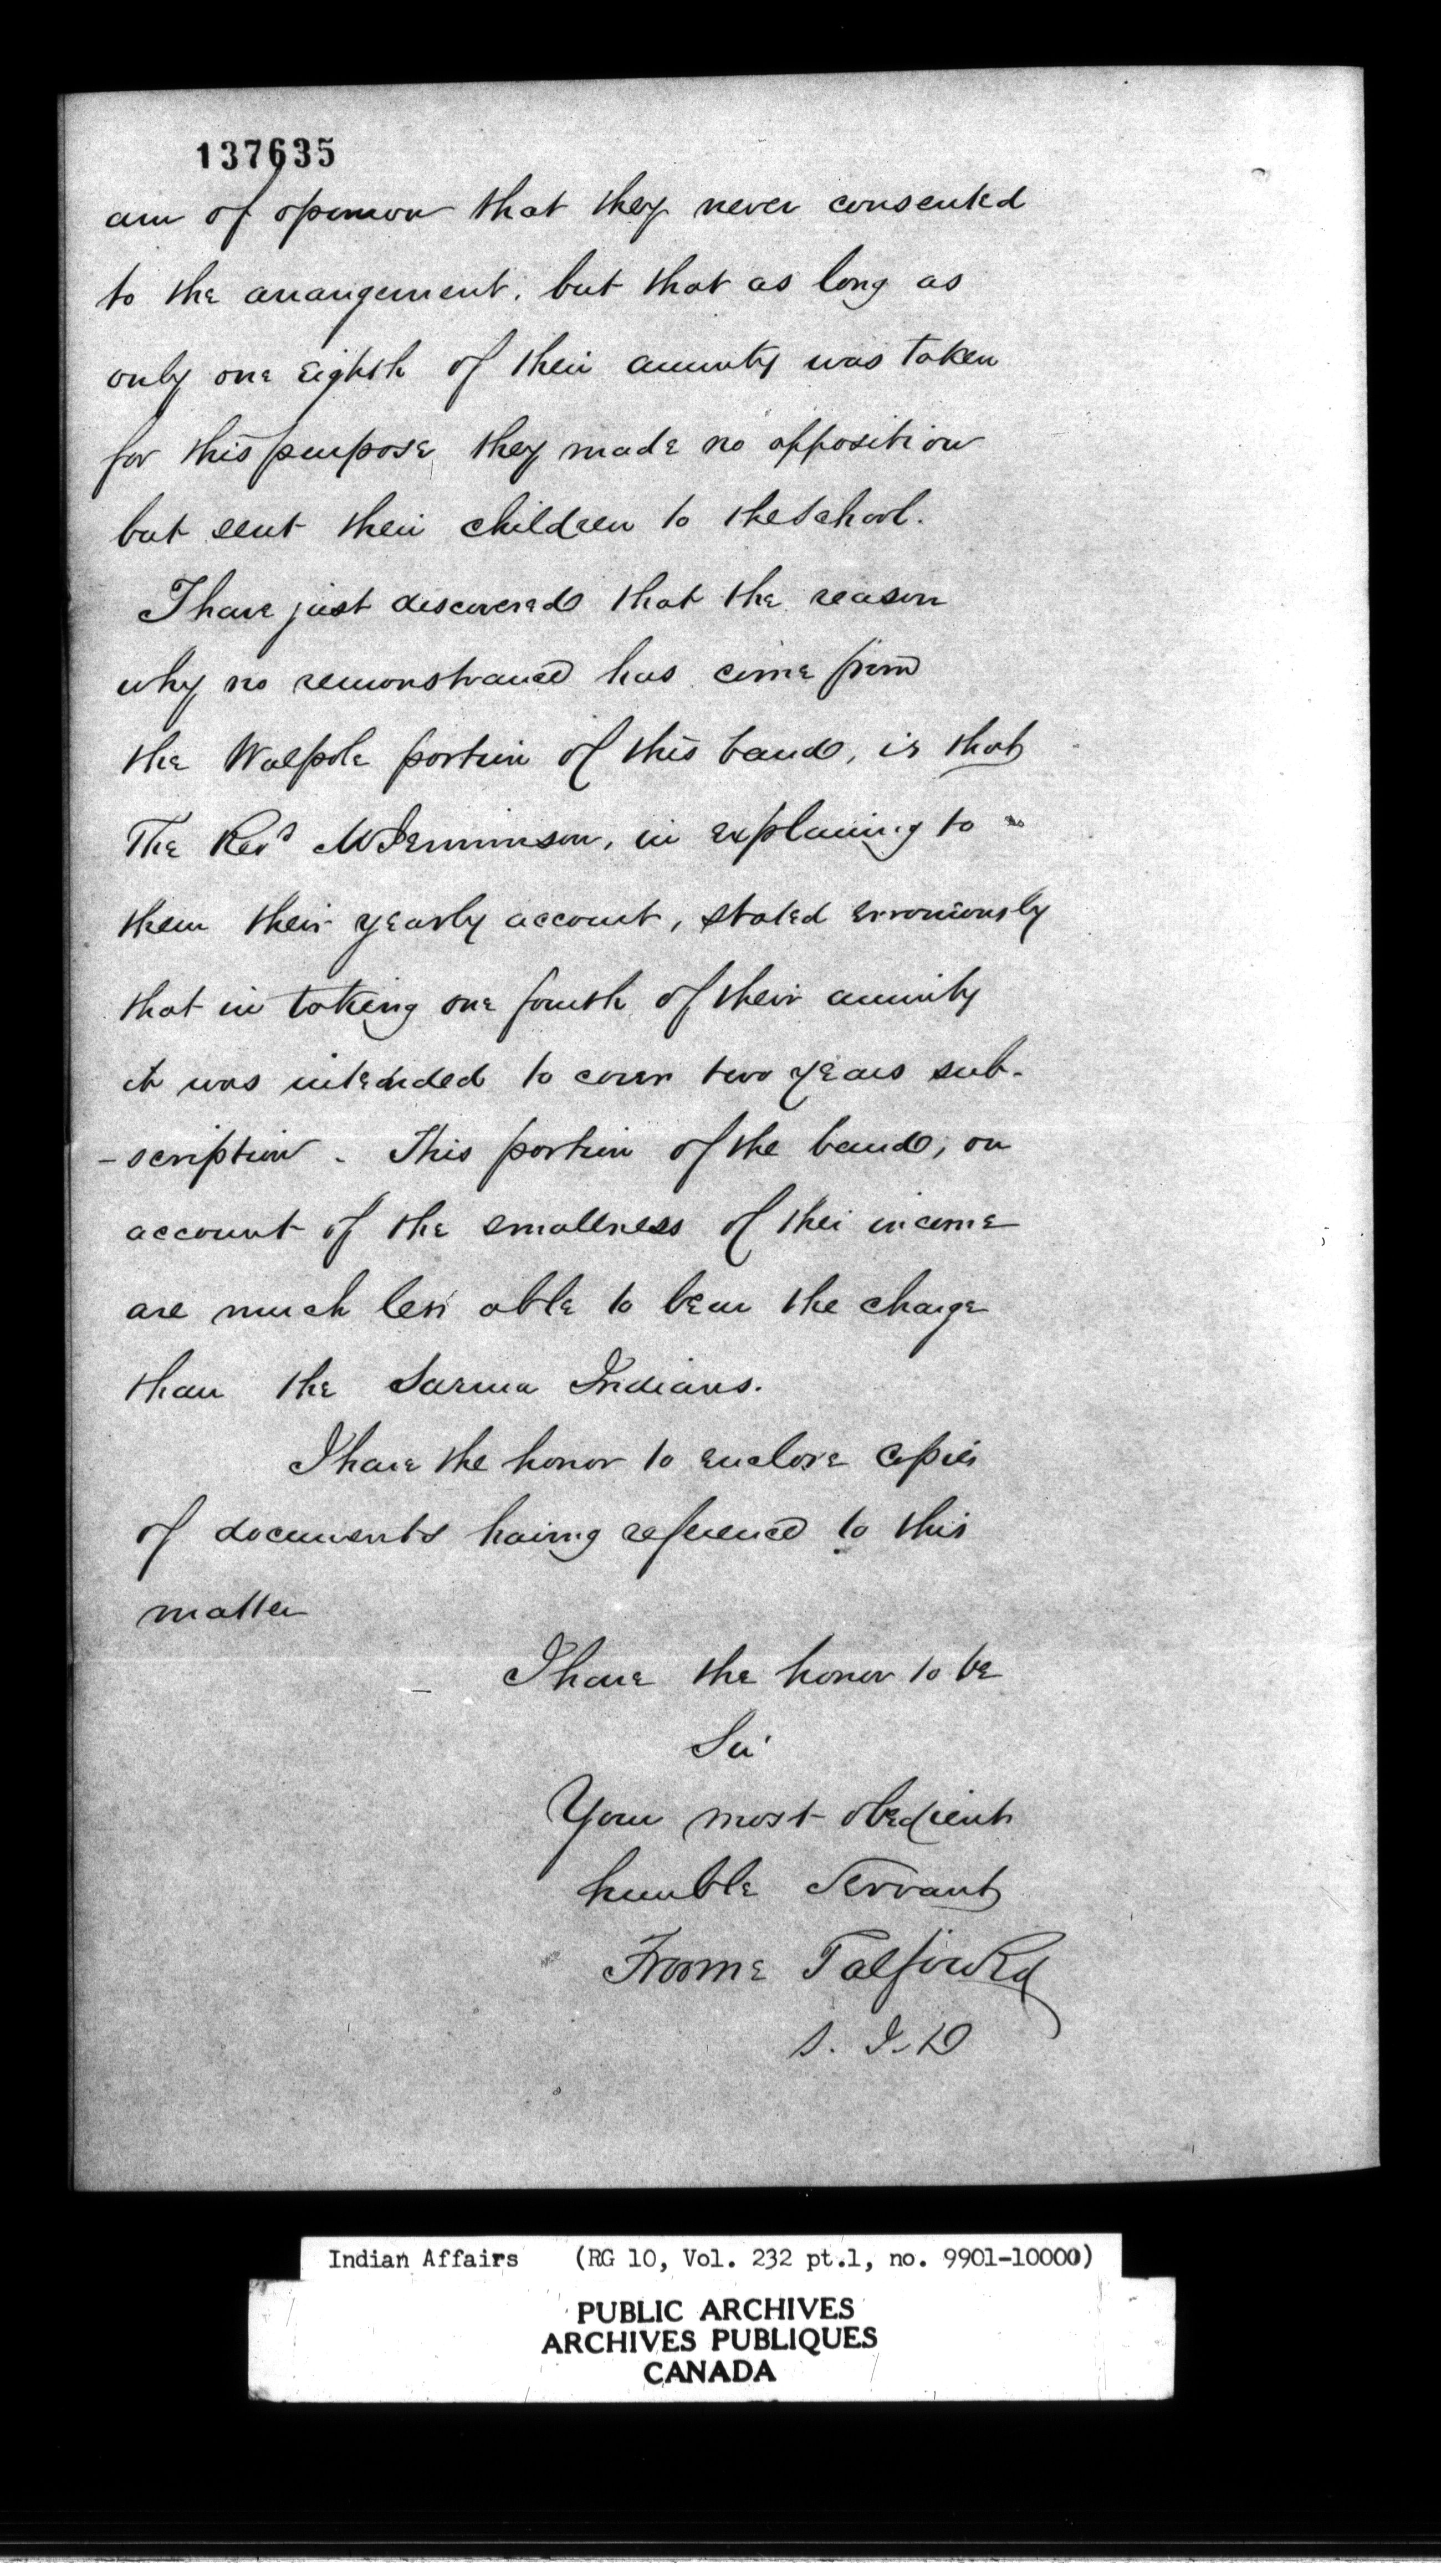 137635
am of opinion that they never consented
to the arrangement, but that as long as
only one eighth of their annuity was taken
for this purpose, they made no opposition
but sent their children to the school.
I have just discovered that the reason
why no remonstrance has come from
the Walpole portion of this band, is that
The Revd Mr Jamieson, in explaining to
them their yearly account, stated erroniously
that in taking one fourth of their annuity
it was intended to cover two years sub-
-scription. This portion of the band, on
account of the smallness of their income
are much less able to bear the charge
than the Sarnia Indians.
I have the honor to enclose copies
of documents having reference to this
matter
I have the honor to be
Sir
Your most obedient
humble Servant
Froome Talfourd
S. I. D
Indian Affairs (RG 10, Vol. 232 pt.1, no. 9901-10000)
PUBLIC ARCHIVES
ARCHIVES PUBLIQUES
CANADA